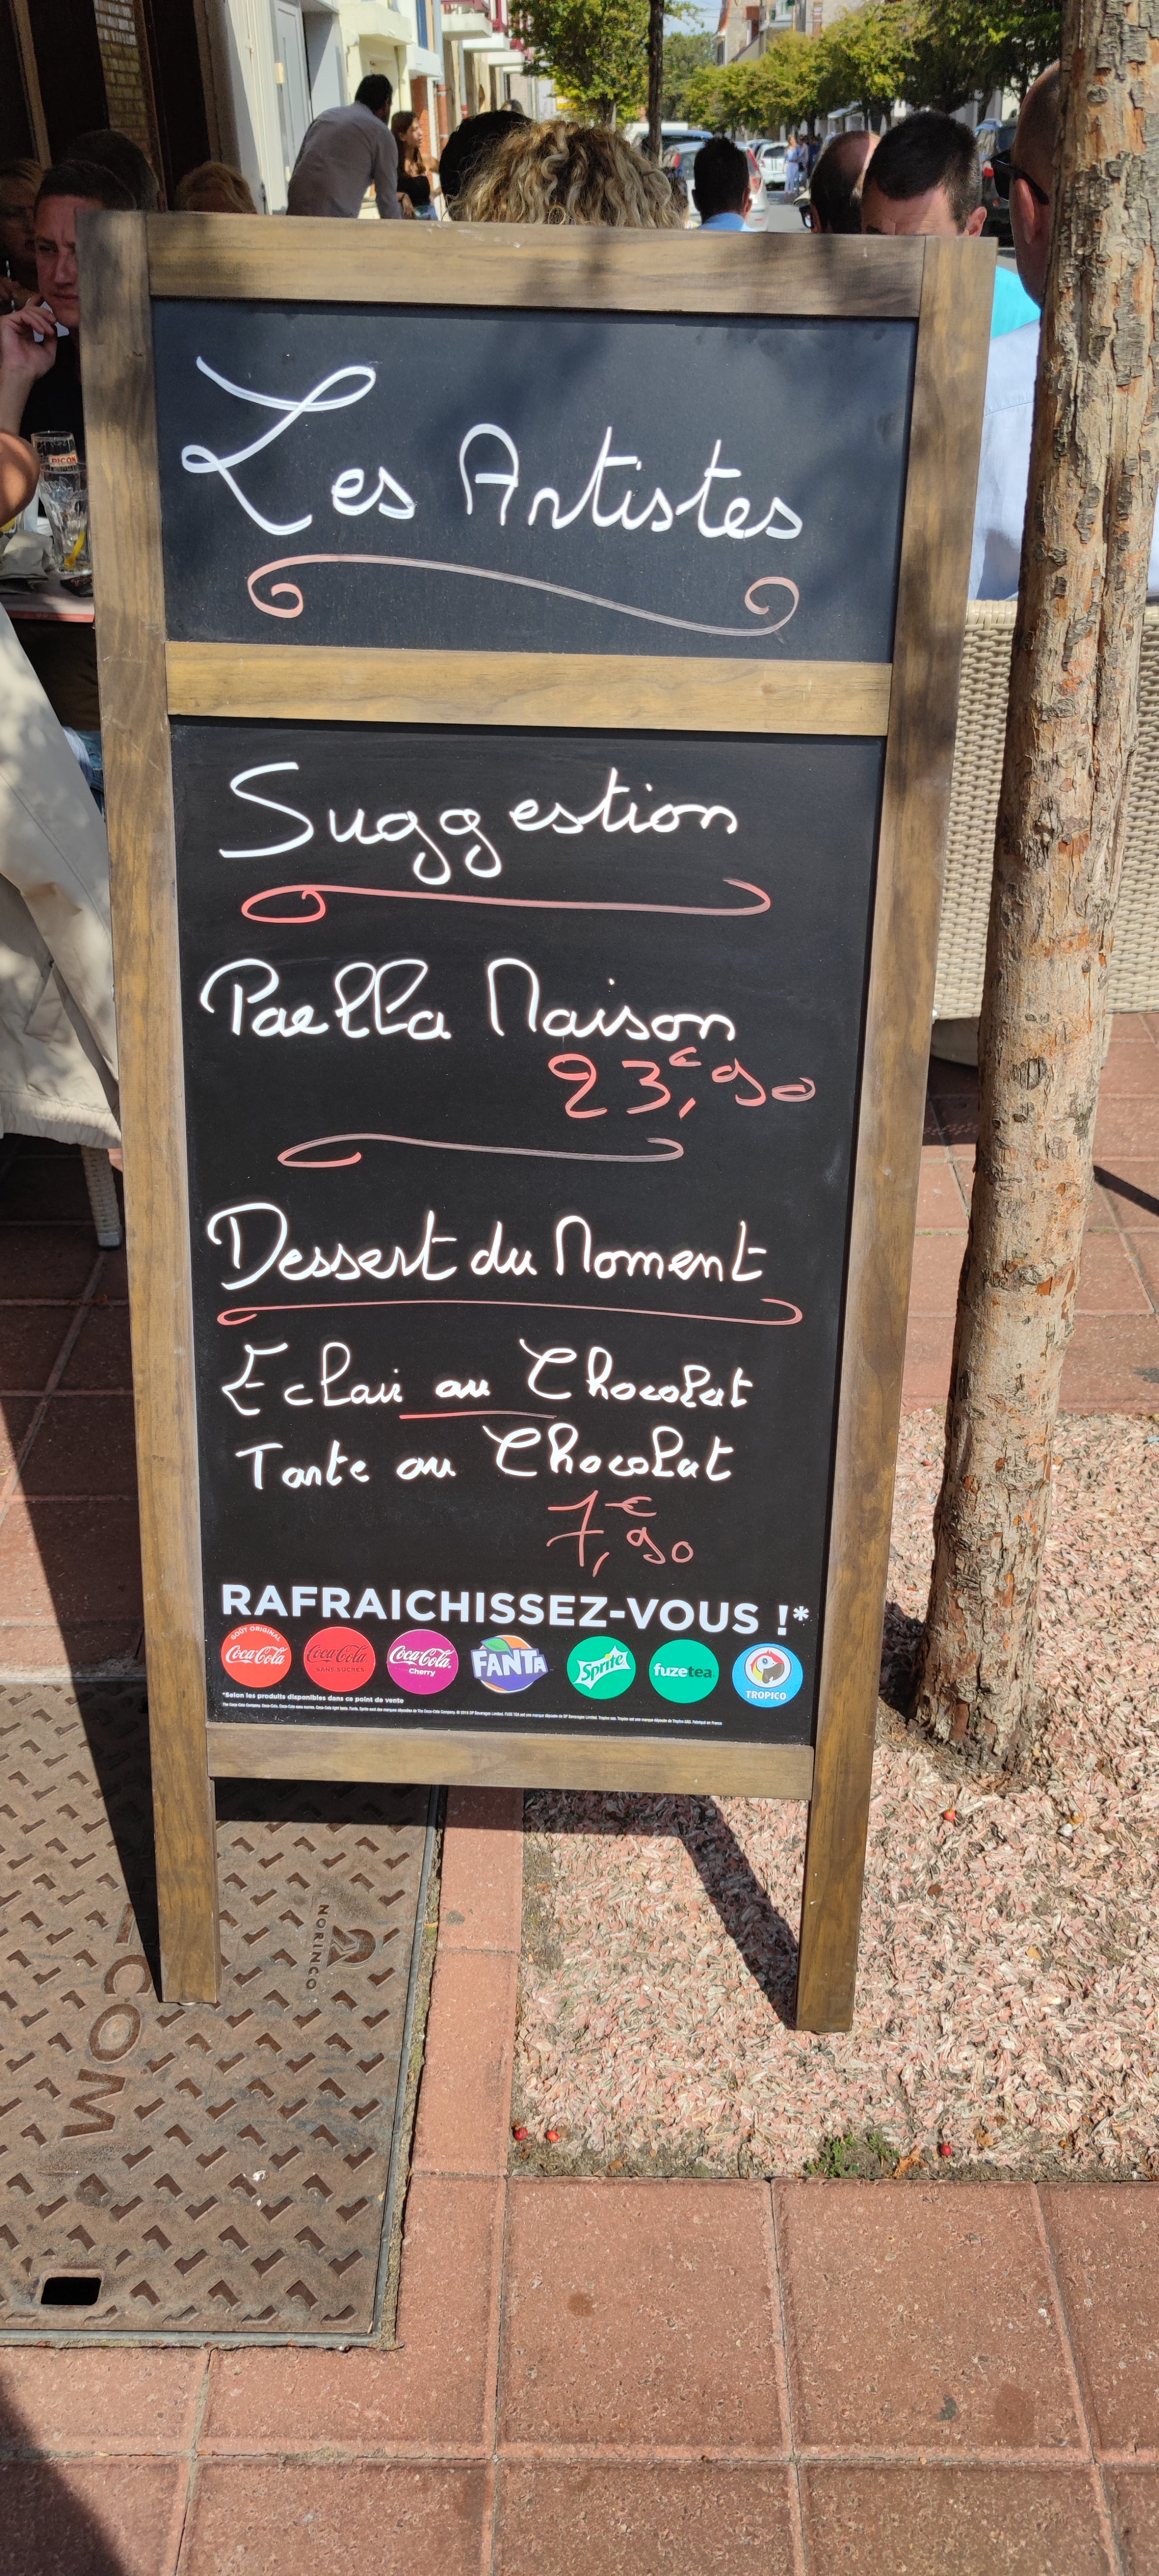 Les Artistes
Suggestion
Paella Maison
23,€90
Dessert du Moment
Eclair au Chocolat
Tarte au Chocolat
7,€90
RAFRAICHISSEZ-VOUS !*
GOÛT ORIGINAL
Coca-Cola
Coca-Cola
SANS SUCRES
Coca-Cola
Cherry
FANTA
Sprite
fuzetea
TROPICO
*Selon les produits disponibles dans ce point de vente
NORINCO
COM